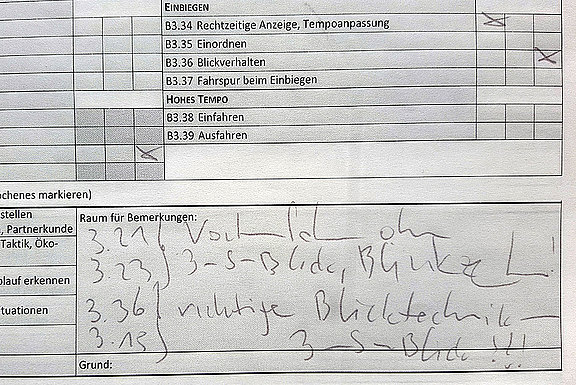 EINBIEGEN
B3.34 Rechtzeitige Anzeige, Tempoanpassung
B3.35 Einordnen
B3.36 Blickverhalten
B3.37 Fahrspur beim Einbiegen
HOHES TEMPO
B3.38 Einfahren
B3.39 Ausfahren
ochenes markieren)
stellen
, Partnerkunde
Taktik, Öko-
blauf erkennen
tuationen
Raum für Bemerkungen:
3.21
3.23 } 3-S-Blick,
3.36 } richtige Blicktechnik –
3.15 3-S-Blick !!!
Grund: